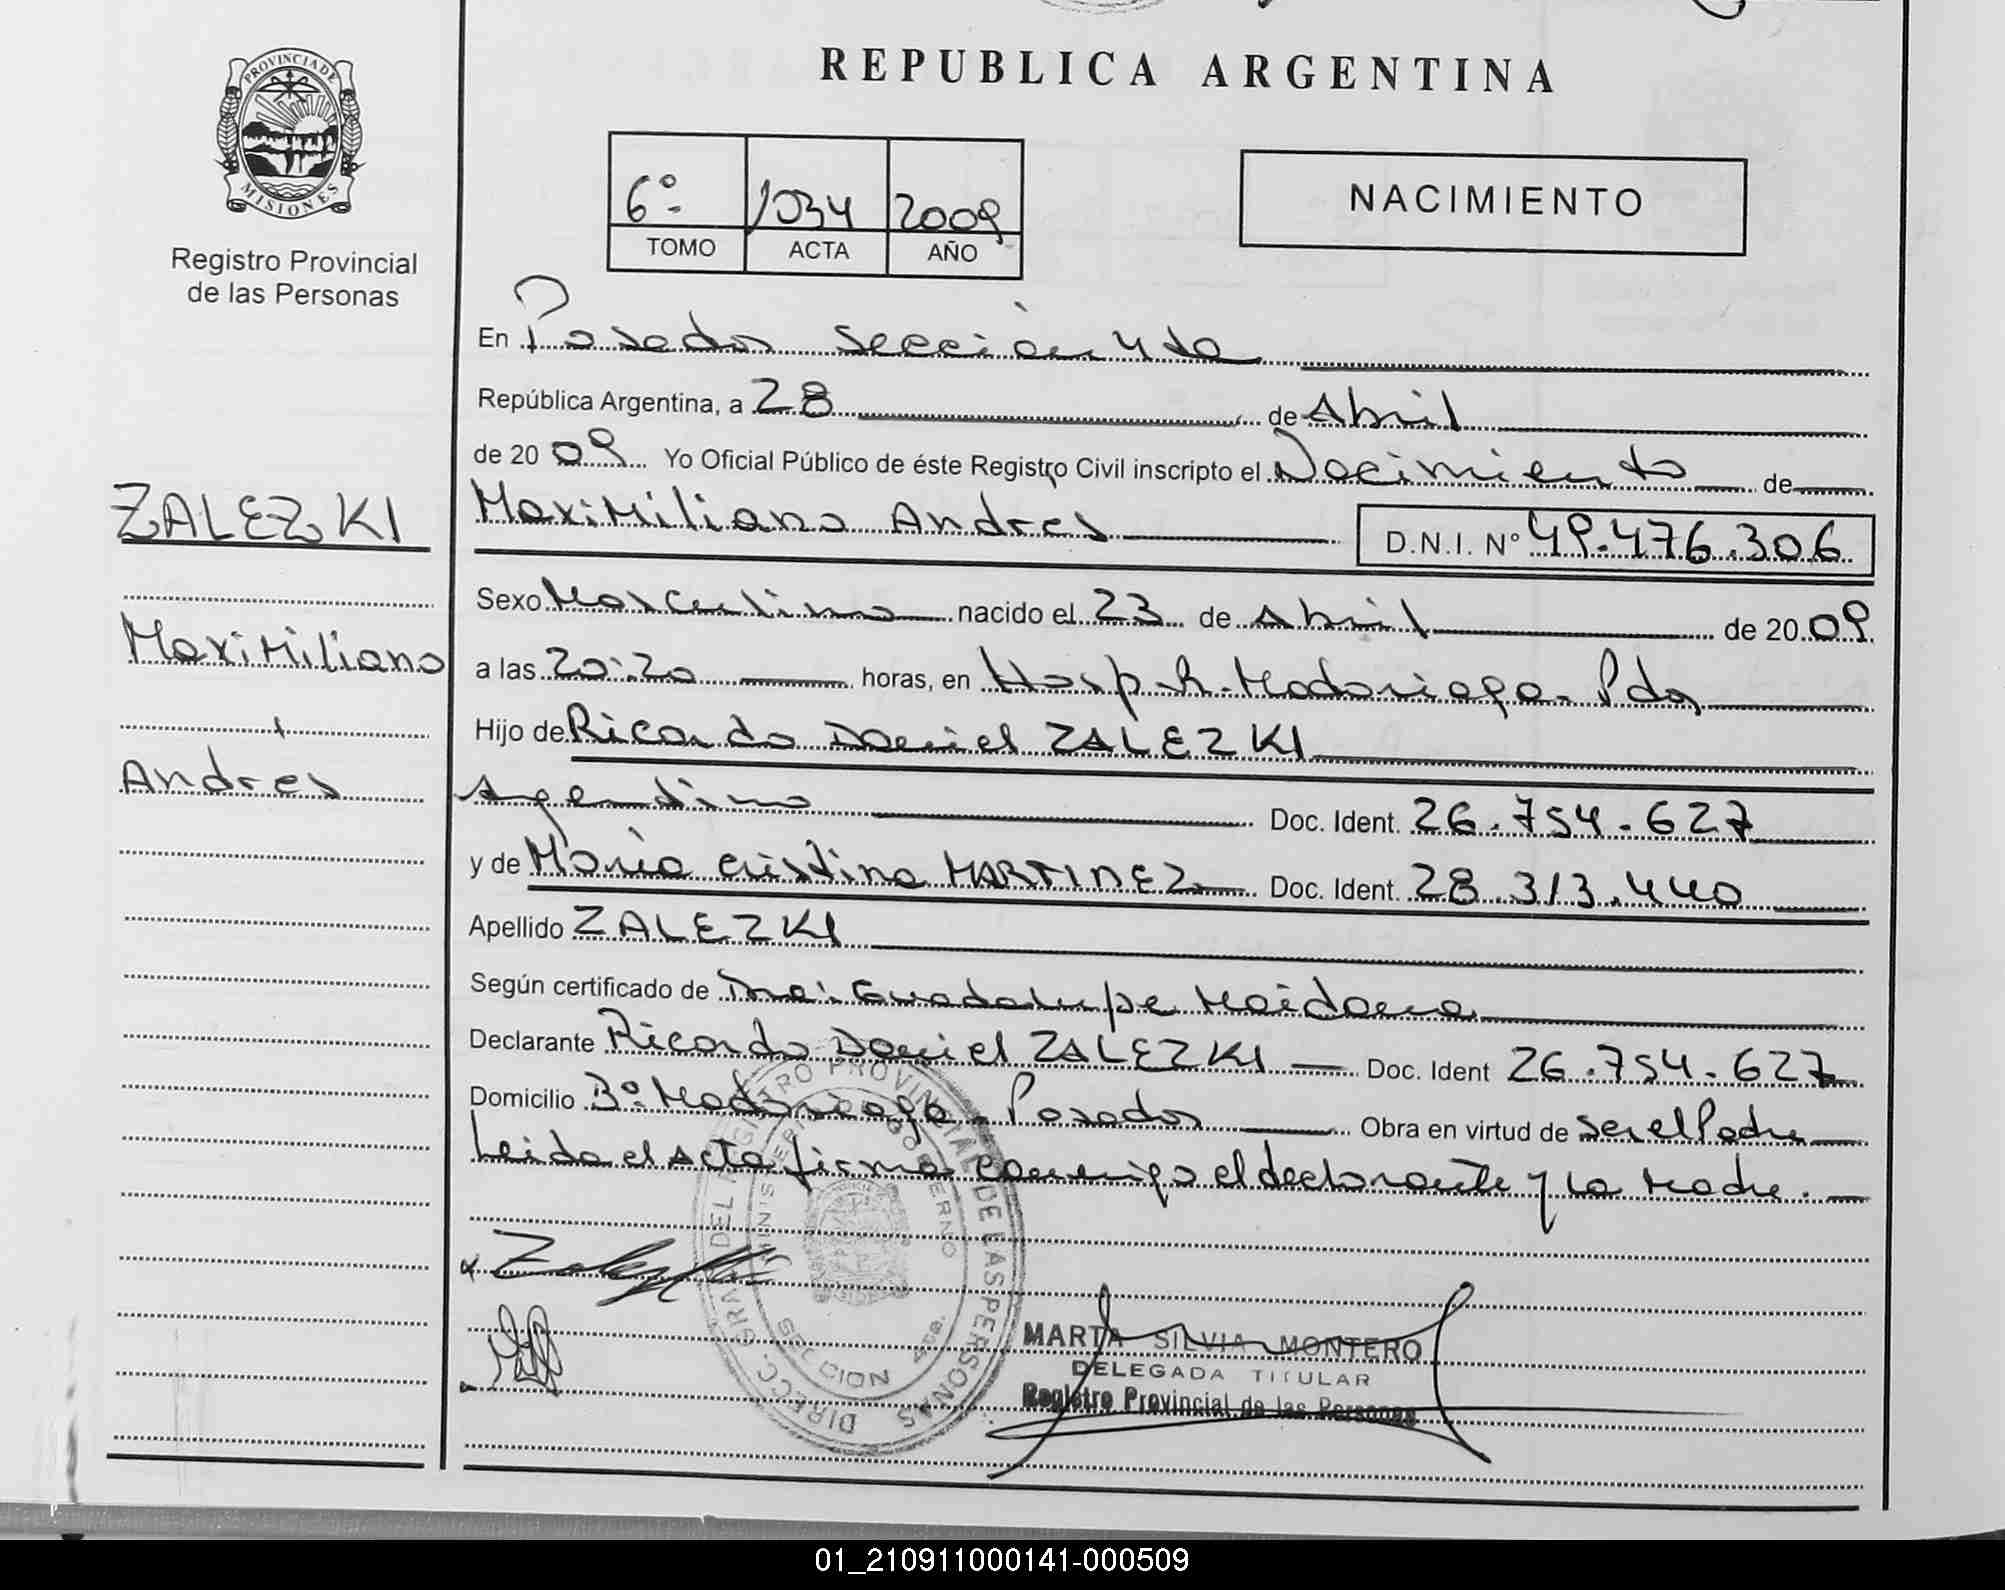 REPUBLICA ARGENTINA
PROVINCIA DE MISIONES
Registro Provincial
de las Personas
6º 1034 2009
TOMO ACTA AÑO
NACIMIENTO
En Posadas sección 4ta
República Argentina, a 28 de Abril
de 2009 Yo Oficial Público de éste Registro Civil inscripto el Nacimiento de
Maximiliano Andres D.N.I. Nº 49.476.306
ZALEZKI
Maximiliano
Andres
Sexo Masculino nacido el 23 de Abril de 2009
a las 20:20 horas, en Hosp. R. Madariaga - Pdas
Hijo de Ricardo Daniel ZALEZKI
Argentino Doc. Ident. 26.754.627
y de María Cristina MARTINEZ Doc. Ident. 28.313.440
Apellido ZALEZKI
Según certificado de Guadalupe Maidana
Declarante Ricardo Daniel ZALEZKI Doc. Ident 26.754.627
Domicilio Bº Madariaga - Posadas Obra en virtud de ser el Padre
Leida el acta firma conmigo el declarante y la Madre.
DIRECC. GRAL DEL REGISTRO PROVINCIAL DE LAS PERSONAS
MINISTERIO DE GOBIERNO
MARTA SILVIA MONTERO
DELEGADA TITULAR
Registro Provincial de las Personas
01_210911000141-000509